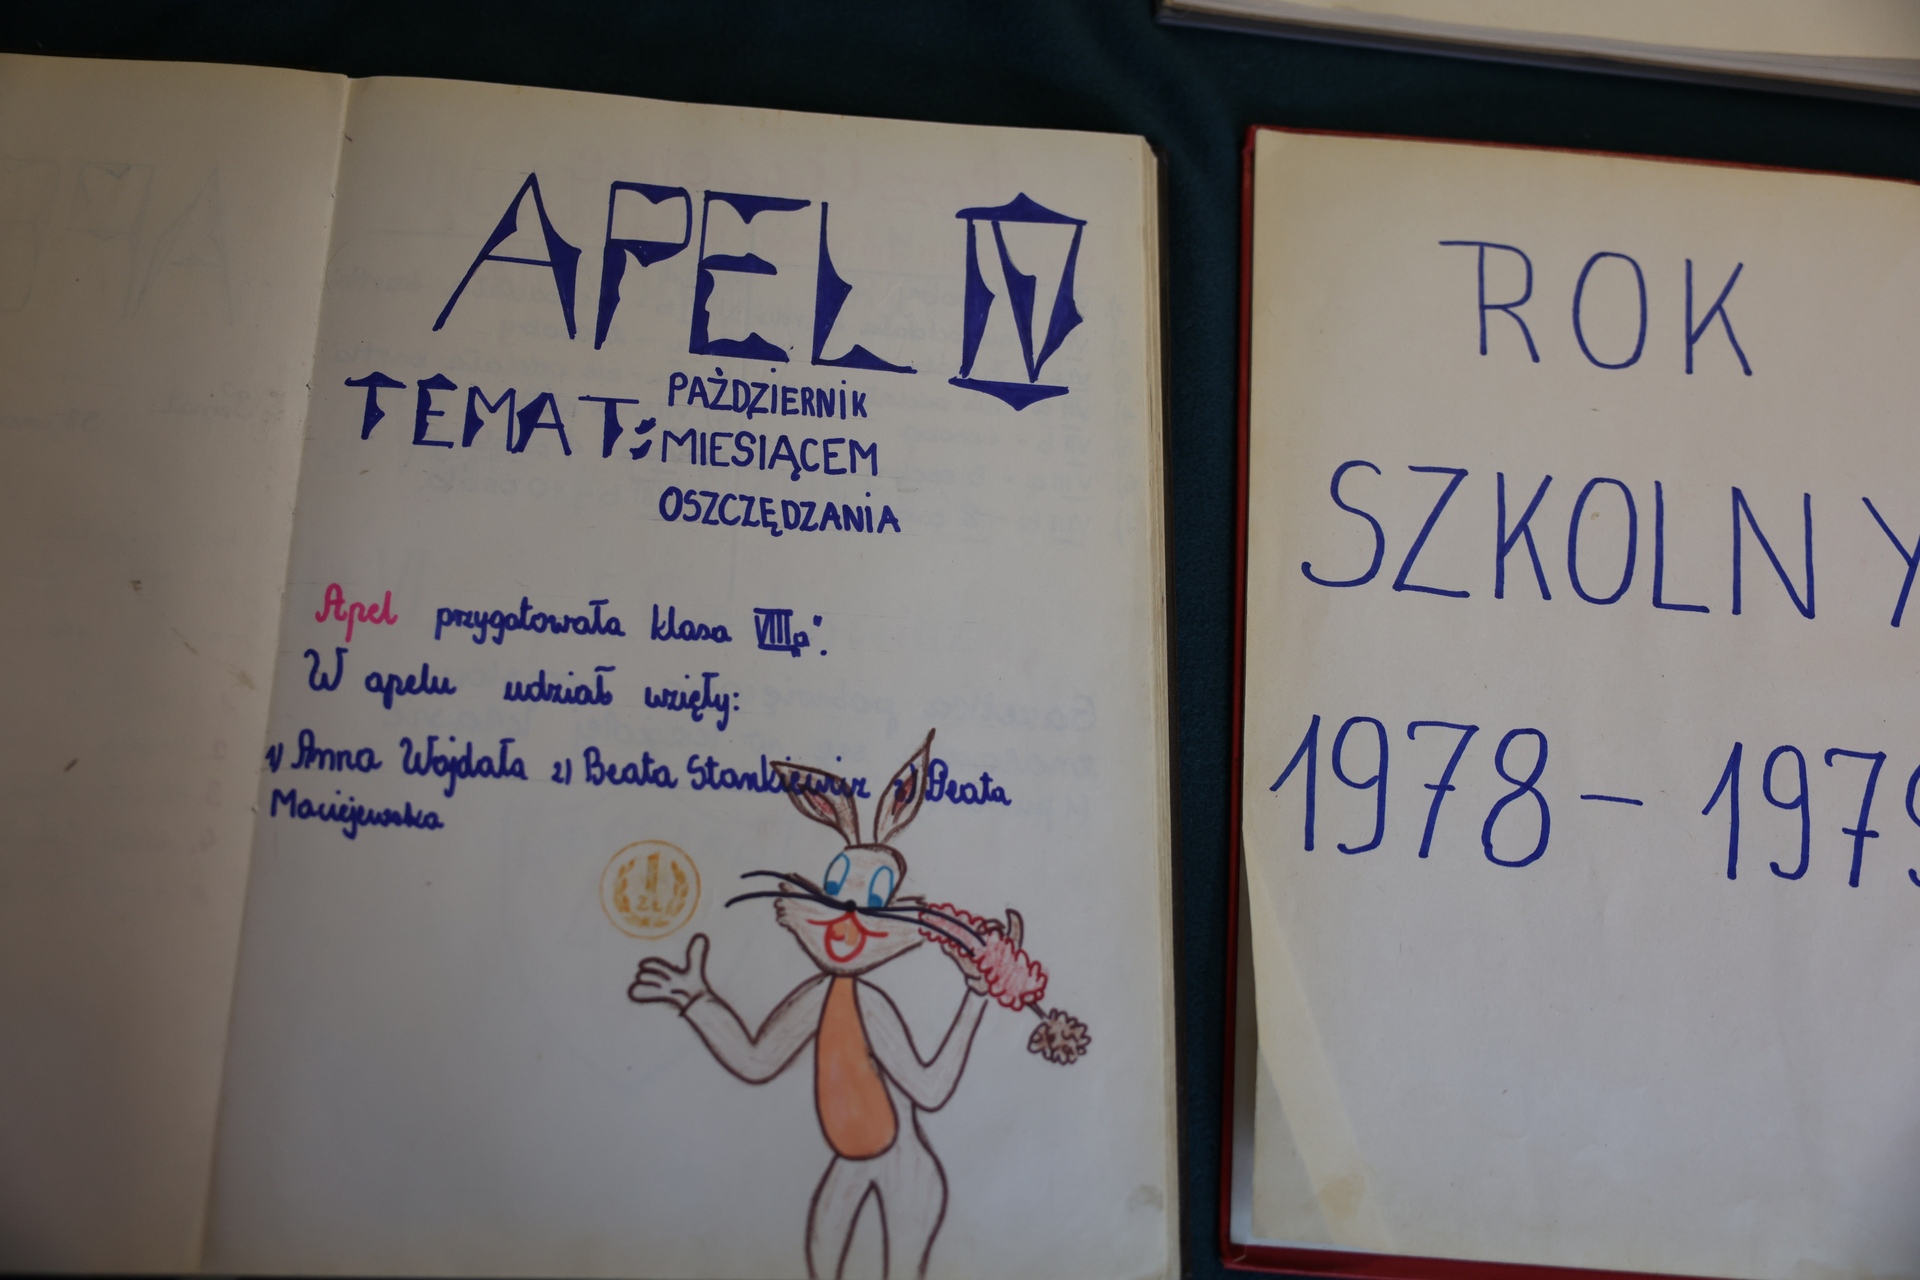 APEL IV
TEMAT: PAŹDZIERNIK
MIESIĄCEM
OSZCZĘDZANIA
Apel przygotowała klasa VIIIa".
W apelu udział wzięły:
1) Anna Wojdała 2) Beata Stankiewicz 3) Beata
Maciejewska
1
ZŁ
ROK
SZKOLNY
1978 - 1979